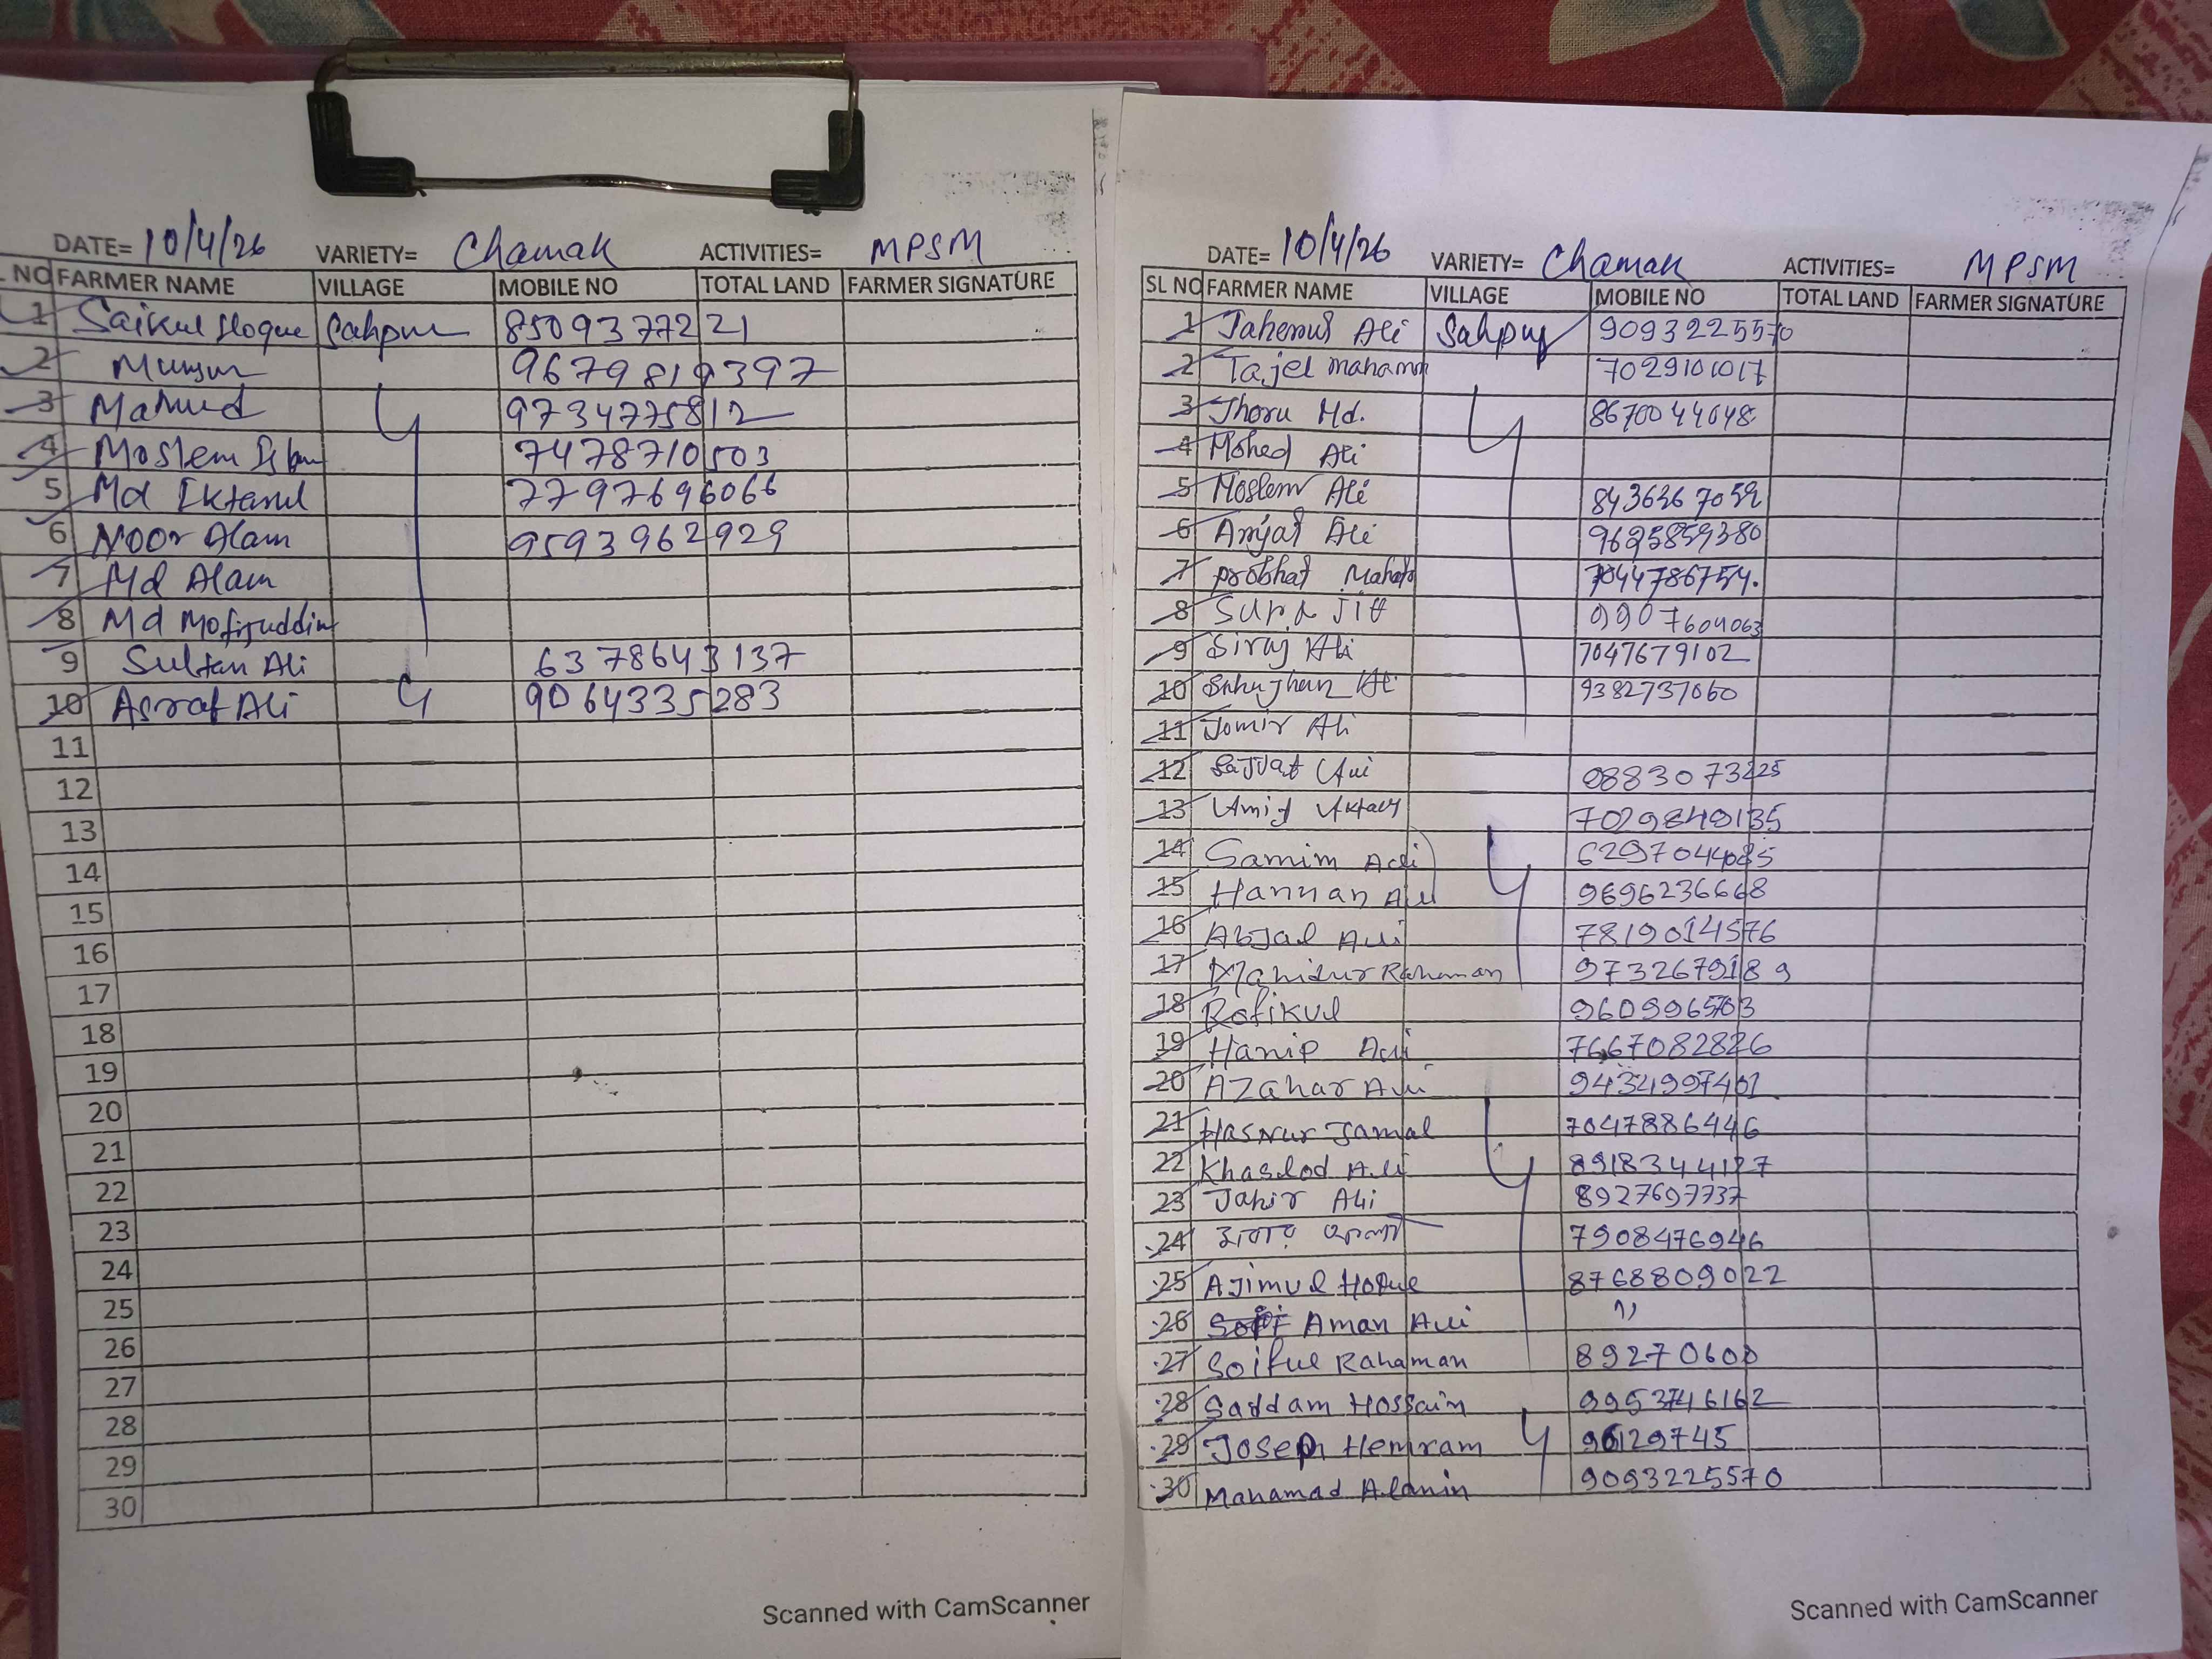 DATE= 10/4/26 VARIETY= Chamak ACTIVITIES= MPSM
L NO FARMER NAME VILLAGE MOBILE NO TOTAL LAND FARMER SIGNATURE
1 Saikul Hoque Sahpur 8509377221
2 Munsur 9679819397
3 Mahud 9734775812
4 Moslem 7478710503
5 Md Ektarul 7797696066
6 Noor Alam 9593962929
7 Md Alam
8 Md Mofijuddin
9 Sultan Ali 6378643137
10 Asraf Ali 9064335283
11
12
13
14
15
16
17
18
19
20
21
22
23
24
25
26
27
28
29
30
Scanned with CamScanner
DATE= 10/4/26 VARIETY= Chamak ACTIVITIES= MPSM
SL NO FARMER NAME VILLAGE MOBILE NO TOTAL LAND FARMER SIGNATURE
1 Taherul Ali Sahpur 9093225570
2 Tajel mahamm 7029101017
3 Jhoru Md. 8670044048
4 Mohed Ali
5 Moslem Ali 8436367052
6 Amjat Ali 9625859380
7 Probhat Mahato 7044786754.
8 9907604063
9 Siraj Ali 7047679102
10 9382737060
11 Jomir Ali
12 0883073225
13 7029840135
14 Samim Ali 6297044085
15 Hannan Ali 9696236668
16 Abjal Ali 7819014576
17 Mahidur Rahaman 9732679189
18 Rafikul 960996503
19 Hanip Ali 7667082826
20 Azahar Ali 9434997401
21 Hasnur Jamal 7047886446
22 Khaslod Ali 8918344127
23 Jahir Ali 8927697737
24 7908476946
25 Ajimul Hoque 8768809022
26 Aman Ali 11
27 Soiful Rahaman 89270600
28 Saddam Hossain 9953746162
29 Joseph Hemram 96129745
30 Mahamad Alamin 9093225570
Scanned with CamScanner